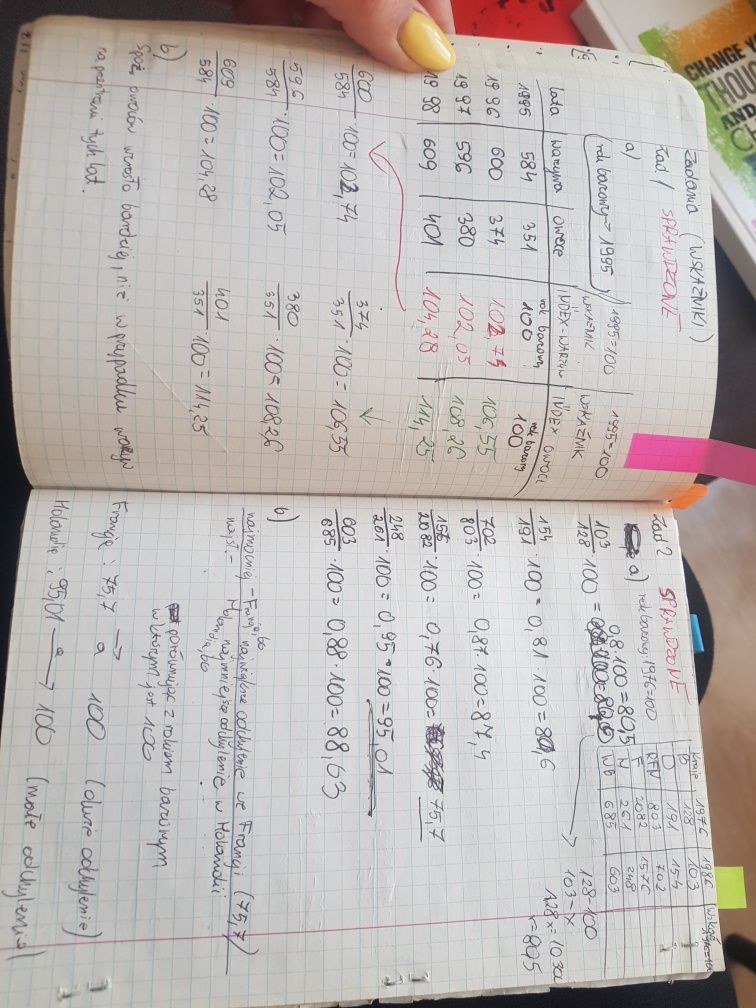 CHANGE YO
THOU
AND
C
Zadania (WSKAŹNIKI)
Zad 1 SPRAWDZONE
a)
rok bazowy = 1995
1995=100
1995=100
lata
warzywa
owoce
WSKAŹNIK
INDEX-WARZYW
WSKAŹNIK
INDEX OWOCU
1995 584 351 rok bazowy 100 rok bazowy 100
1996 600 374 102,74 106,55
1997 596 380 102,05 108,26
1998 609 401 104,28 114,25
600/584 · 100 = 102,74
374/351 · 100 = 106,55
596/584 · 100 = 102,05
380/351 · 100 = 108,26
609/584 · 100 = 104,28
401/351 · 100 = 114,25
b)
Spoż. owoców wzrosło bardziej, niż w przypadku warzyw
na przestrzeni tych lat.
Zad 2 SPRAWDZONE
a) rok bazowy: 1976=100
Kraje 1976 1986 1976=100
B 128 103
D 191 154
RFN 803 702
F 2082 1576
N 261 248
WB 685 603
103/128 · 100 = 0,8·100=80,5
128-100
103-x
128x=10300
x=80,5
154/191 · 100 = 0,81 · 100 = 80,6
702/803 · 100 = 0,87·100=87,4
1576/2082 · 100 = 0,76·100= 75,7
248/261 · 100 = 0,95·100=95,01
603/685 · 100 = 0,88·100=88,03
b)
najmocniej - Francja, bo największe odchylenie we Francji (75,7)
najsł. - Holandia, bo najmniejsze odchylenie w Holandii
porównując z rokiem bazowym
w którym jest 100
Francja: 75,7 → a 100 (duże odchylenie)
Holandie: 95,01 a → 100 (małe odchylenie)